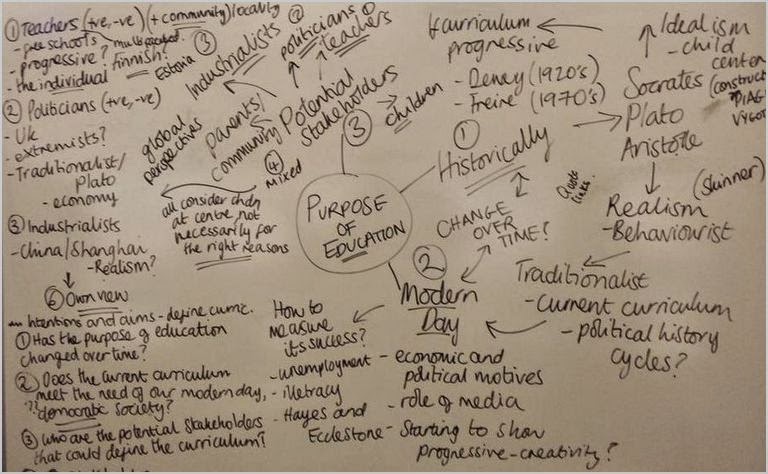 ① Teachers (+ve, -ve) (+ community)/locality
- free schools
- progressive?
- the individual
Finnish?
Estonia
② Politicians (+ve, -ve)
- UK
- extremists?
- Traditionalist/
Plato
- economy
③ Industrialists
- China/Shanghai
- Realism?
⑥ Own view
Intentions and aims - define curric.
① Has the purpose of education
changed over time?
② Does the current curriculum
meet the need of our modern day,
democratic society?
③ Who are the potential stakeholders
that could define the curriculum?
global
perspectives
③
Industrialists
② politicians
① teachers
parents/
community
④
mixed
Potential
Stakeholders
③ → children
all consider chdn
at centre, not
necessarily for
the right reasons
PURPOSE
OF
EDUCATION
①
Historically
curriculum
progressive
- Dewey (1920's)
- Freire (1970's)
Idealism
- child
center
(construct
PIAG
VYGOT
Socrates
Plato
Aristotle
(Skinner)
Realism
- Behaviourist
Quote
links.
CHANGE
OVER
TIME?
Traditionalist
- current curriculum
- political history
cycles?
②
Modern
Day
- economic and
political motives
- role of media
- Starting to show
progressive - creativity?
How to
measure
its success?
- unemployment
- illetracy
- Hayes and
Ecclestone